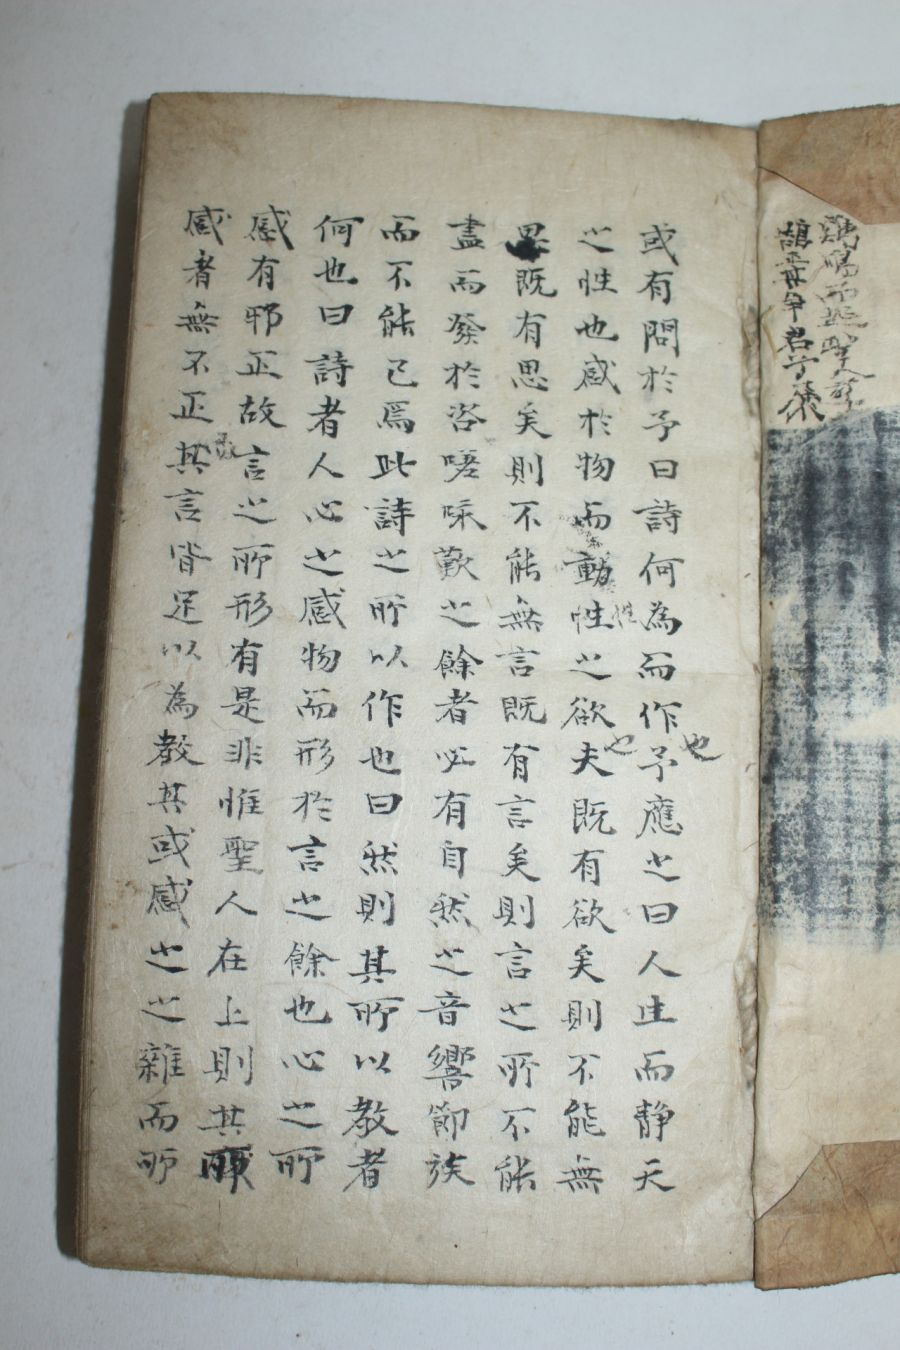 鷄鳴而起聖人
君子儀
或有問於予曰詩何為而作也予應之曰人生而静天
之性也感於物而動性之欲也夫既有欲矣則不能無
思既有思矣則不能無言既有言矣則言之所不能
盡而發於咨嗟咏歎之餘者必有自然之音響節族
而不能已焉此詩之所以作也曰然則其所以教者
何也曰詩者人心之感物而形於言之餘也心之所
感有邪正故言之所形有是非惟聖人在上則其所
感者無不正其言皆足以為教其或感之之雜而所